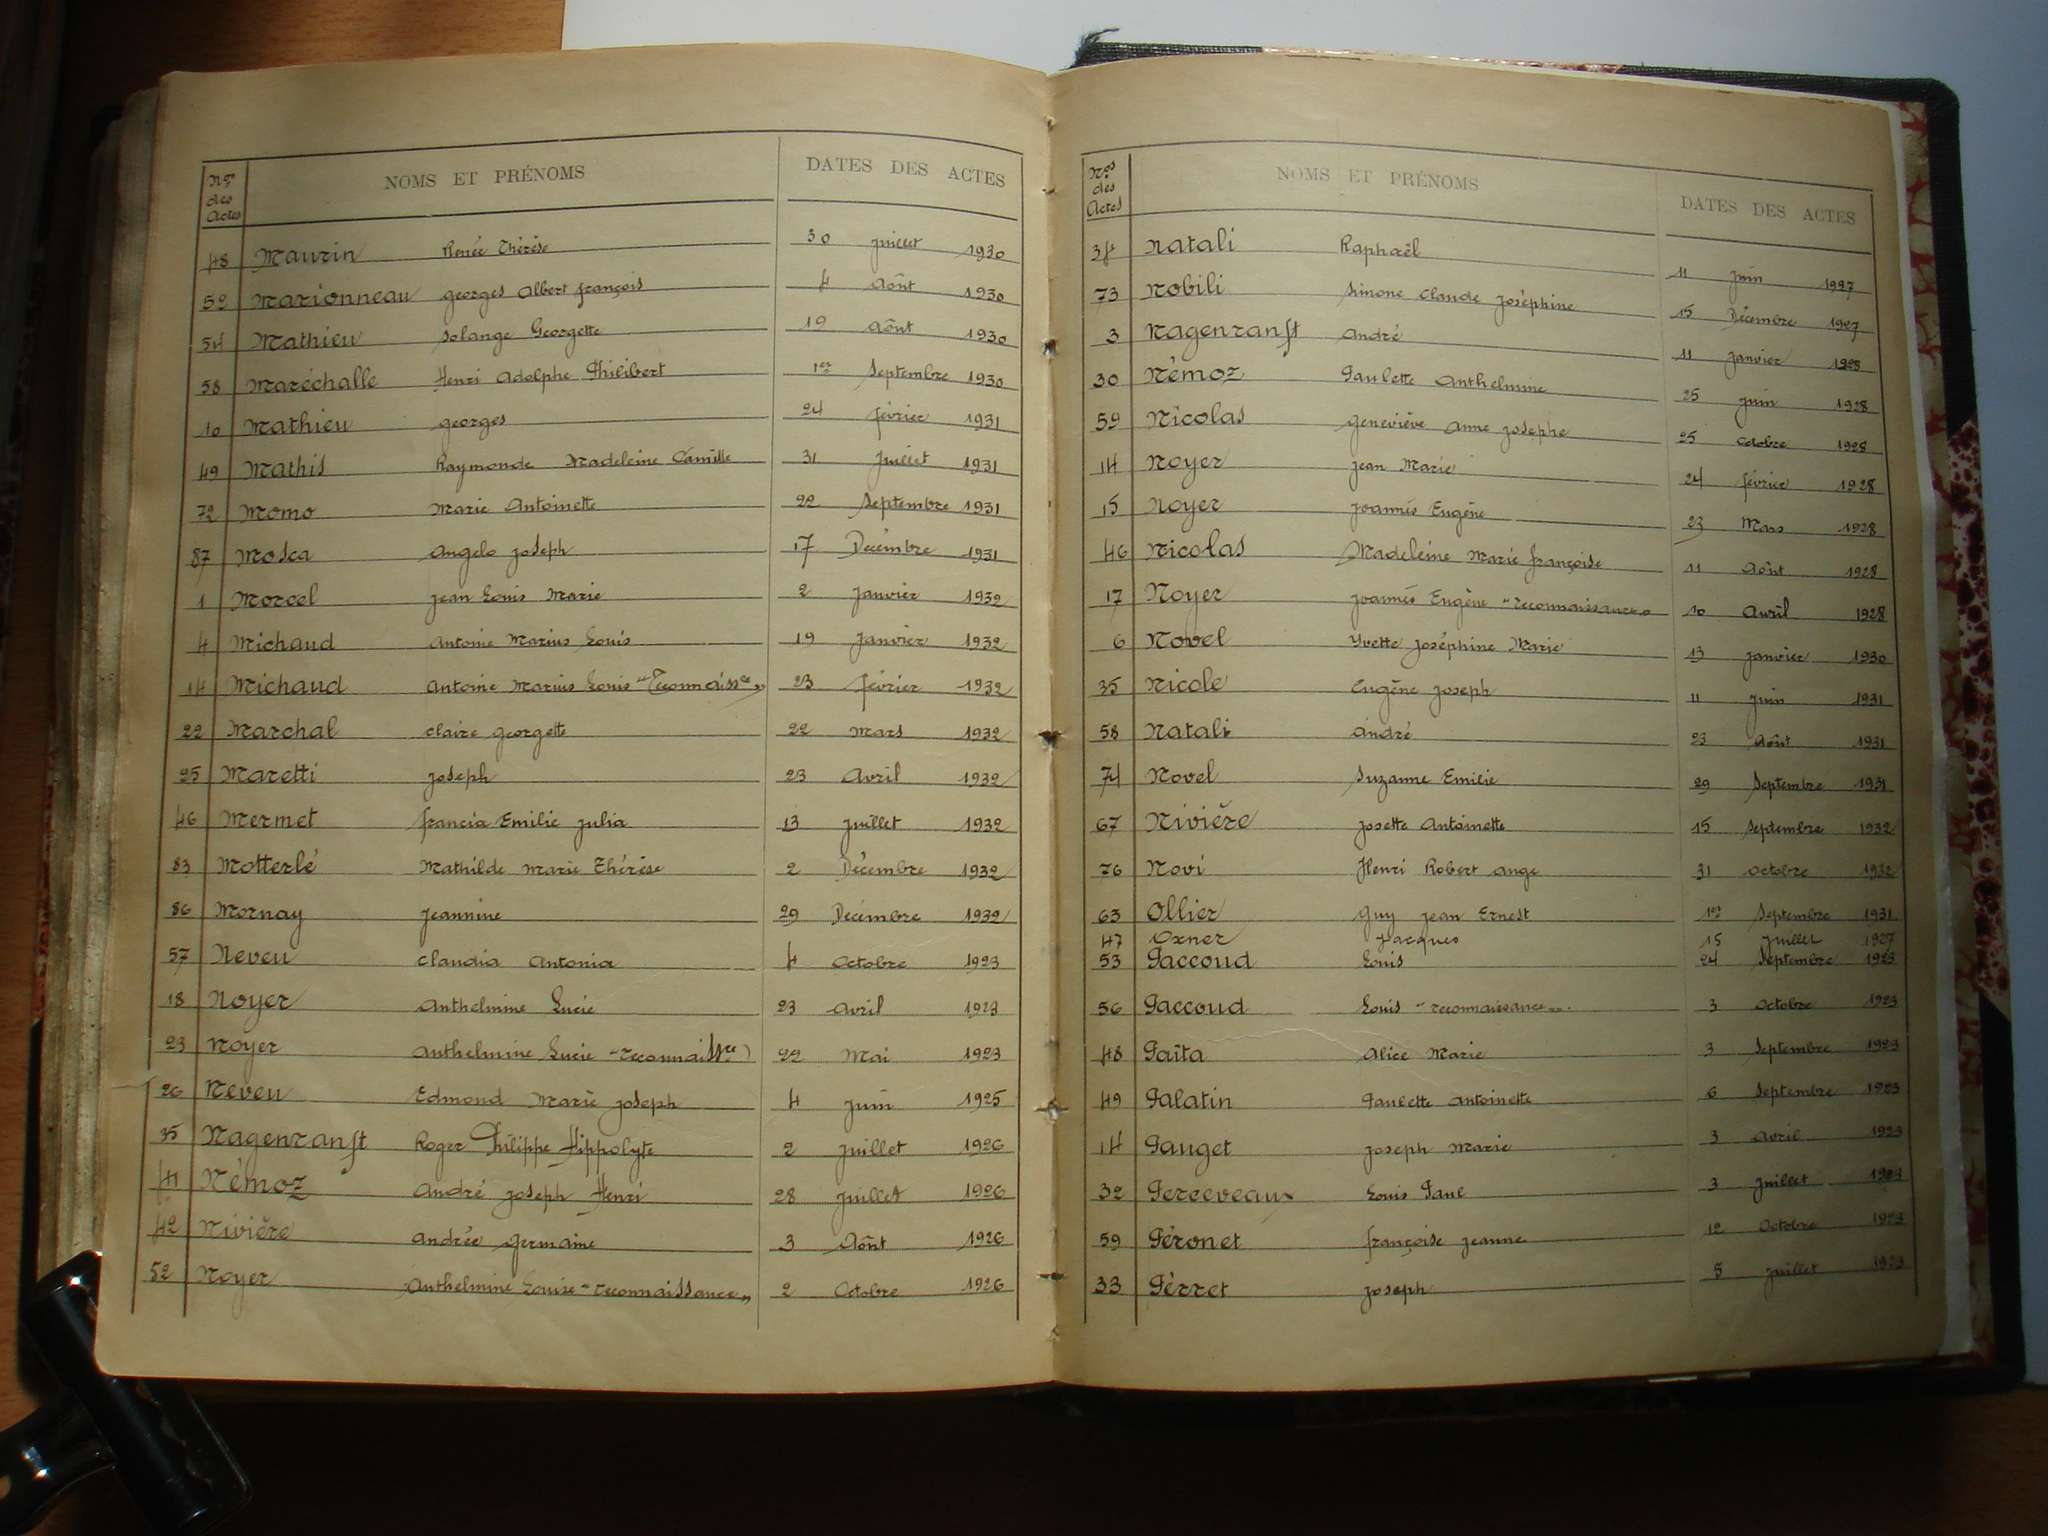 Nos des Actes NOMS ET PRÉNOMS DATES DES ACTES
48 Maurin Renée Thérèse 30 juillet 1930
52 Marionneau Georges Albert françois 4 Aôut 1930
54 Mathieu Solange Georgette 19 Aôut 1930
58 Maréchalle Henri Adolphe Philibert 1er Septembre 1930
10 Mathieu Georges 24 février 1931
49 Mathis Raymonde Madeleine Camille 31 Juillet 1931
72 Momo Marie Antoinette 22 Septembre 1931
87 Mosca Angelo Joseph 17 Décembre 1931
1 Morcel Jean Louis Marie 2 Janvier 1932
4 Michaud Antoine Marius Louis 19 Janvier 1932
14 Michaud Antoine Marius Louis "Reconnaissce" 23 février 1932
22 Marchal Claire Georgette 22 Mars 1932
25 Maretti Joseph 23 Avril 1932
46 Mermet francia Emilie Julia 13 Juillet 1932
83 Motterlé Mathilde Marie Thérèse 2 Décembre 1932
86 Mornay Jeannine 29 Décembre 1932
57 Neveu Claudia Antonia 4 Octobre 1923
18 Noyer Anthelmine Lucie 23 Avril 1923
23 Noyer Anthelmine Lucie "reconnaissce) 22 Mai 1923
26 Neveu Edmond Marie Joseph 4 Juin 1925
35 Nagenranft Roger Philippe Hippolyte 2 Juillet 1926
41 Némoz André Joseph Henri 28 Juillet 1926
42 Nivière Andrée Germaine 3 Aôut 1926
52 Noyer Anthelmine Louise "reconnaissance" 2 Octobre 1926
Nos des Actes NOMS ET PRÉNOMS DATES DES ACTES
34 Natali Raphaël 11 Juin 1927
73 Nobili Simone Claude Joséphine 15 Décembre 1927
3 Nagenranft André 11 Janvier 1928
30 Némoz Paulette Anthelmine 25 Juin 1928
59 Nicolas Geneviève Anne Josephe 25 Octobre 1928
14 Noyer Jean Marie 24 février 1928
15 Noyer Joannès Eugène 23 Mars 1928
46 Nicolas Madeleine Marie françoise 11 Aôut 1928
17 Noyer Joannès Eugène "reconnaissance" 10 Avril 1928
6 Novel Yvette Joséphine Marie 13 Janvier 1930
35 Nicole Eugène Joseph 11 Juin 1931
58 Natali André 23 Aôut 1931
74 Novel Suzanne Emilie 29 Septembre 1931
67 Nivière Josette Antoinette 15 Septembre 1932
76 Novi Henri Robert Ange 31 Octobre 1932
63 Ollier Guy Jean Ernest 1er Septembre 1931
47 Oxner Jacques 15 Juillet 1927
53 Paccoud Louis 24 Septembre 1923
56 Paccoud Louis "reconnaissance" 3 Octobre 1923
48 Païta Alice Marie 3 Septembre 1923
49 Palatin Paulette Antoinette 6 Septembre 1923
14 Pauget Joseph Marie 3 Avril 1923
32 Perceveaux Louis Paul 3 Juillet 1923
59 Péronet françoise Jeanne 12 Octobre 1923
33 Pérret Joseph 5 Juillet 1923